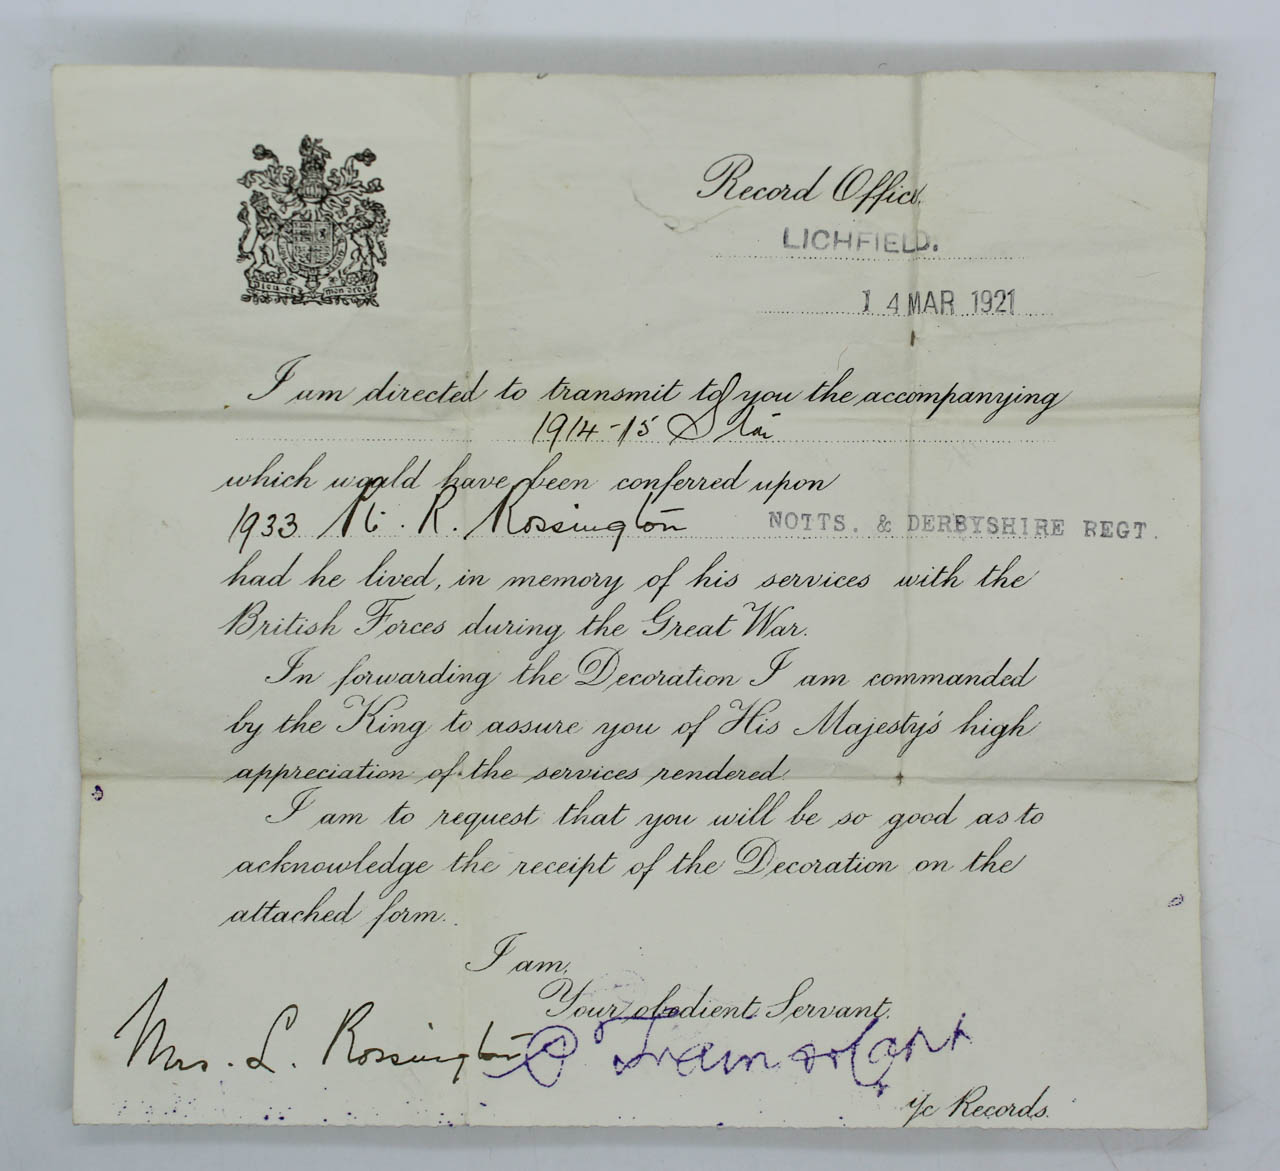 Dieu et mon droit
Record Office,
LICHFIELD.
14 MAR 1921
I am directed to transmit to you the accompanying
1914-15 Star
which would have been conferred upon
1933 Pt. R. Rossington NOTTS. & DERBYSHIRE REGT.
had he lived, in memory of his services with the
British Forces during the Great War.
In forwarding the Decoration I am commanded
by the King to assure you of His Majesty's high
appreciation of the services rendered.
I am to request that you will be so good as to
acknowledge the receipt of the Decoration on the
attached form.
I am,
Your obedient Servant,
Mrs. L. Rossington
i/c Records.